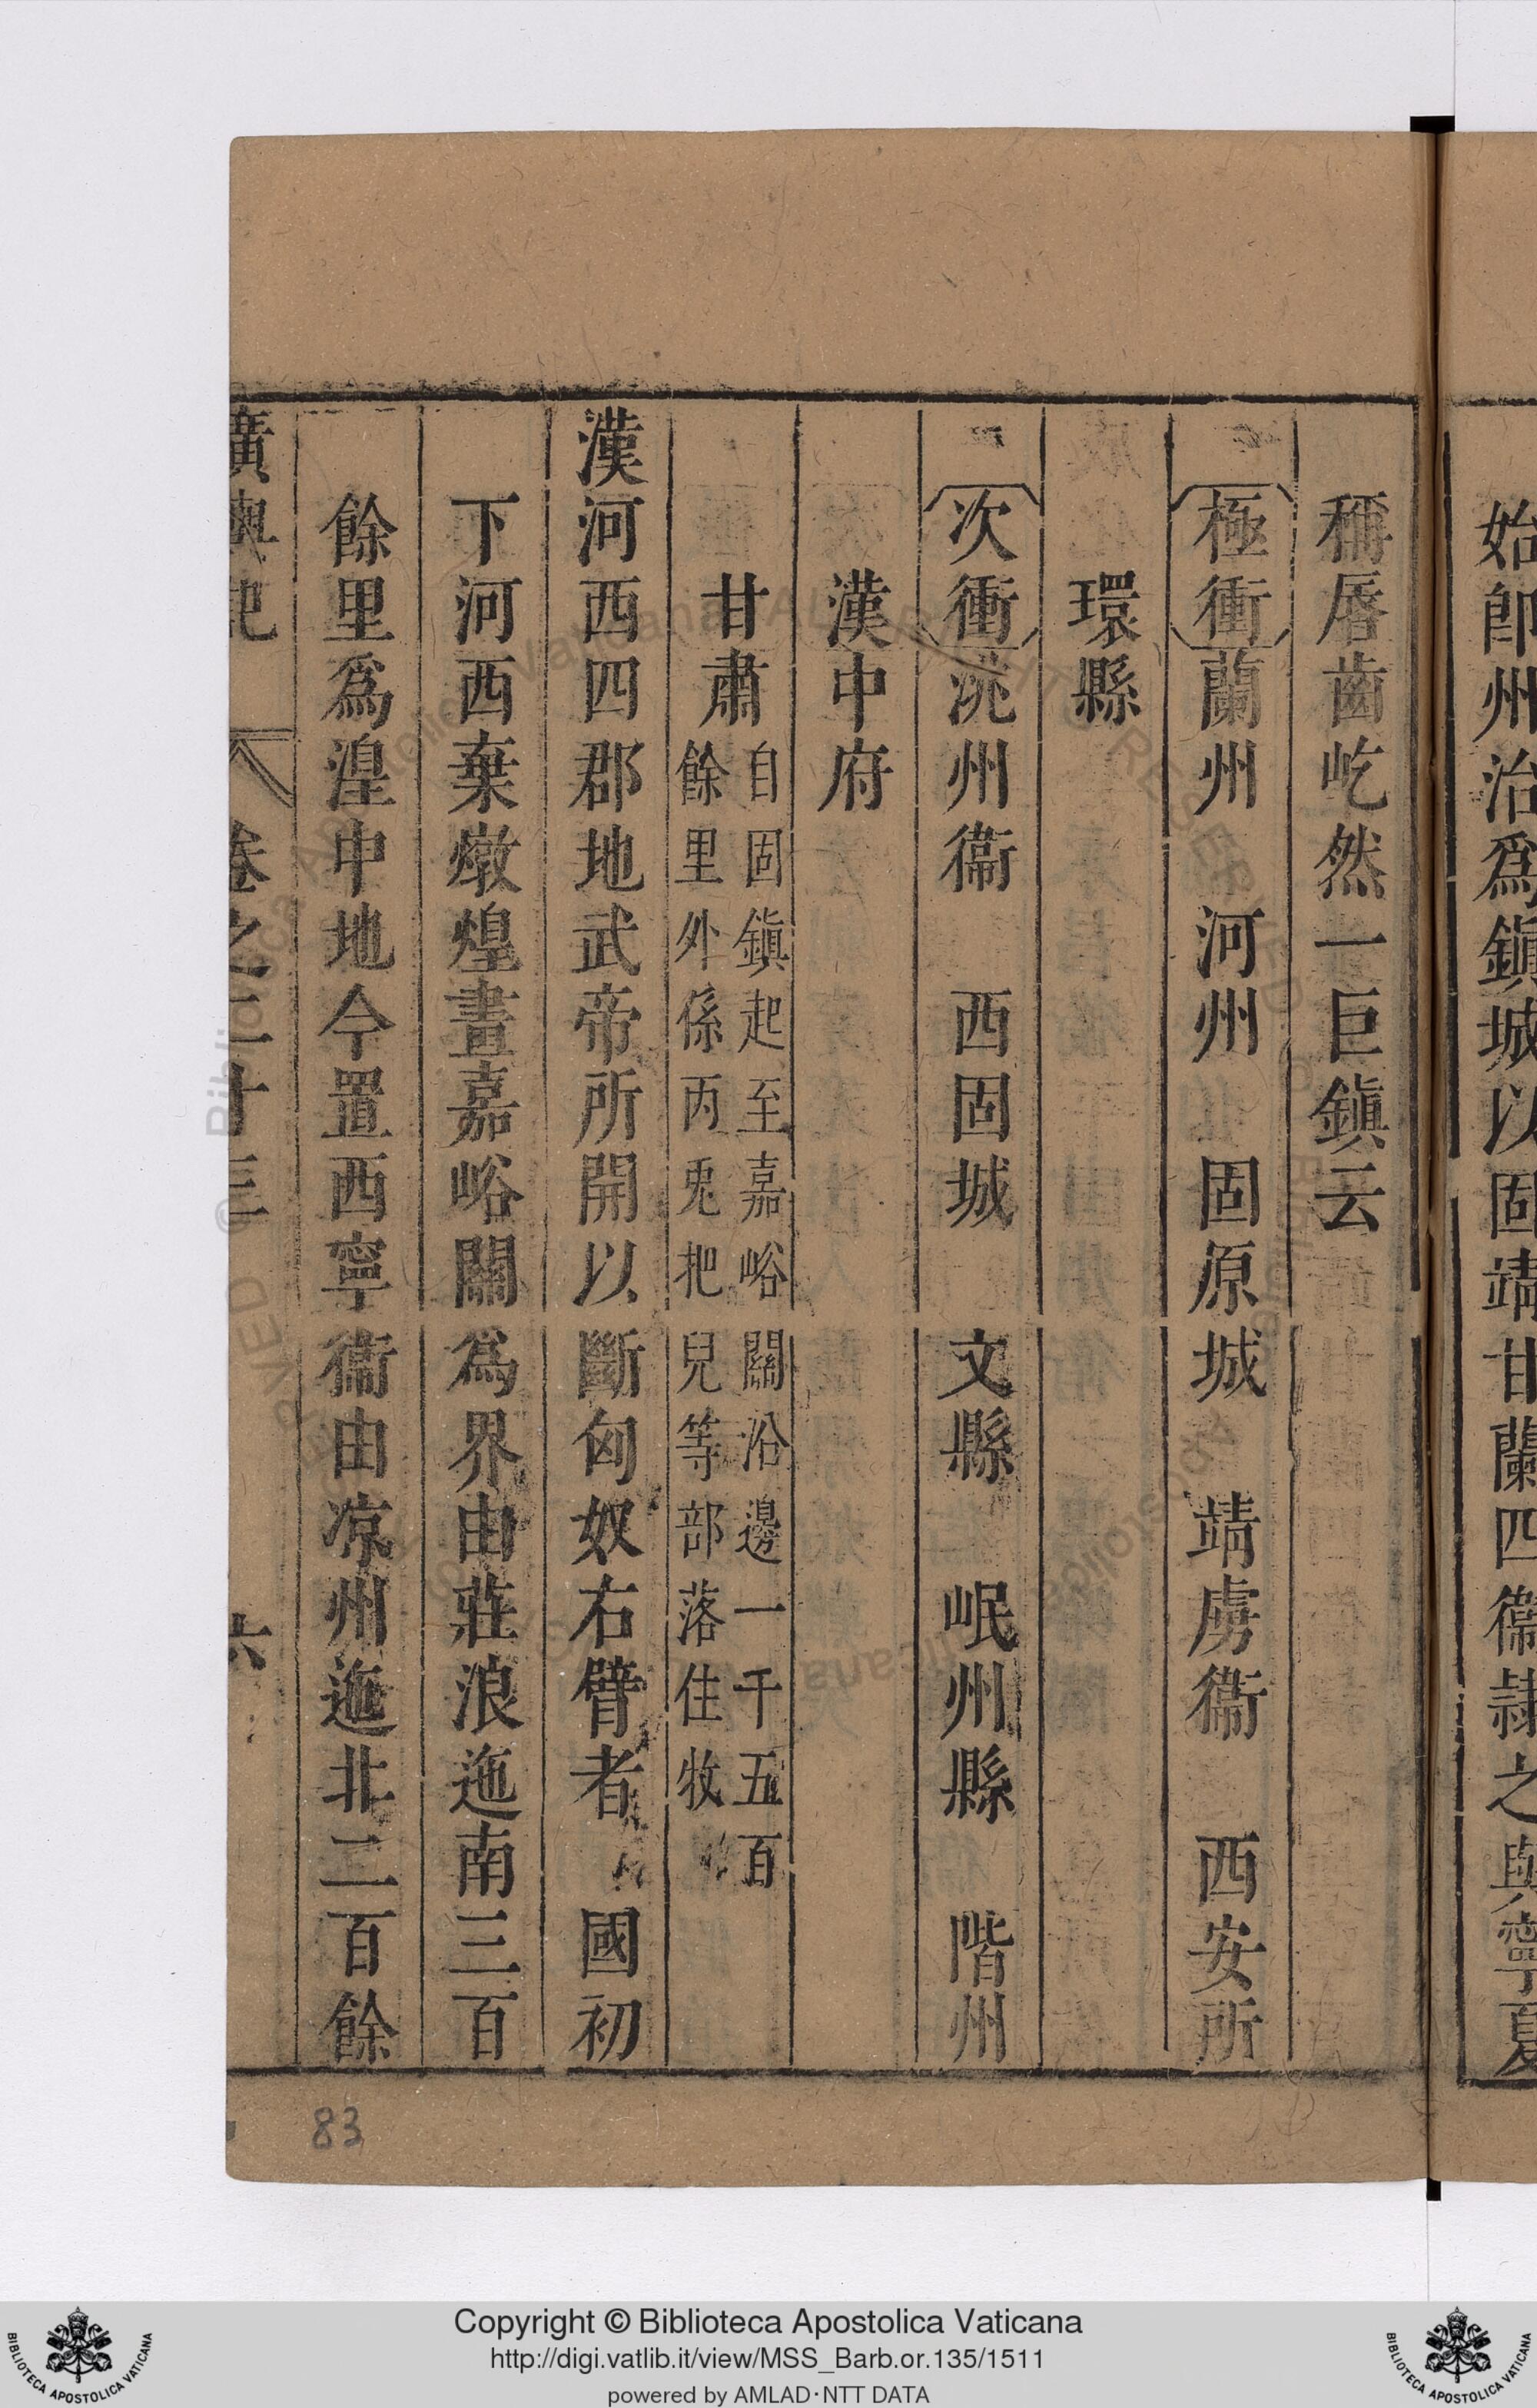 始卽州治爲鎭城以固靖甘蘭四衞隷之與寧夏
稱唇齒屹然一巨鎭云
極衝蘭州 河州 固原城 靖虜衞 西安所
環縣
次衝洮州衞 西固城 文縣 岷州縣 階州
漢中府
甘肅自固鎭起至嘉峪關沿邊一千五百
餘里外係丙兎把兒等部落住牧
漢河西四郡地武帝所開以斷匈奴右臂者 國初
下河西棄燉煌畫嘉峪關爲界由莊浪迤南三百
餘里爲湟中地今置西寧衞由凉州迤北二百餘
廣輿記 卷之二十三 六
83
© Biblioteca Apostolica Vaticana ALL RIGHTS RESERVED
Copyright © Biblioteca Apostolica Vaticana
http://digi.vatlib.it/view/MSS_Barb.or.135/1511
powered by AMLAD·NTT DATA
BIBLIOTECA APOSTOLICA VATICANA
BIBLIOTECA APOSTOLICA VATICANA